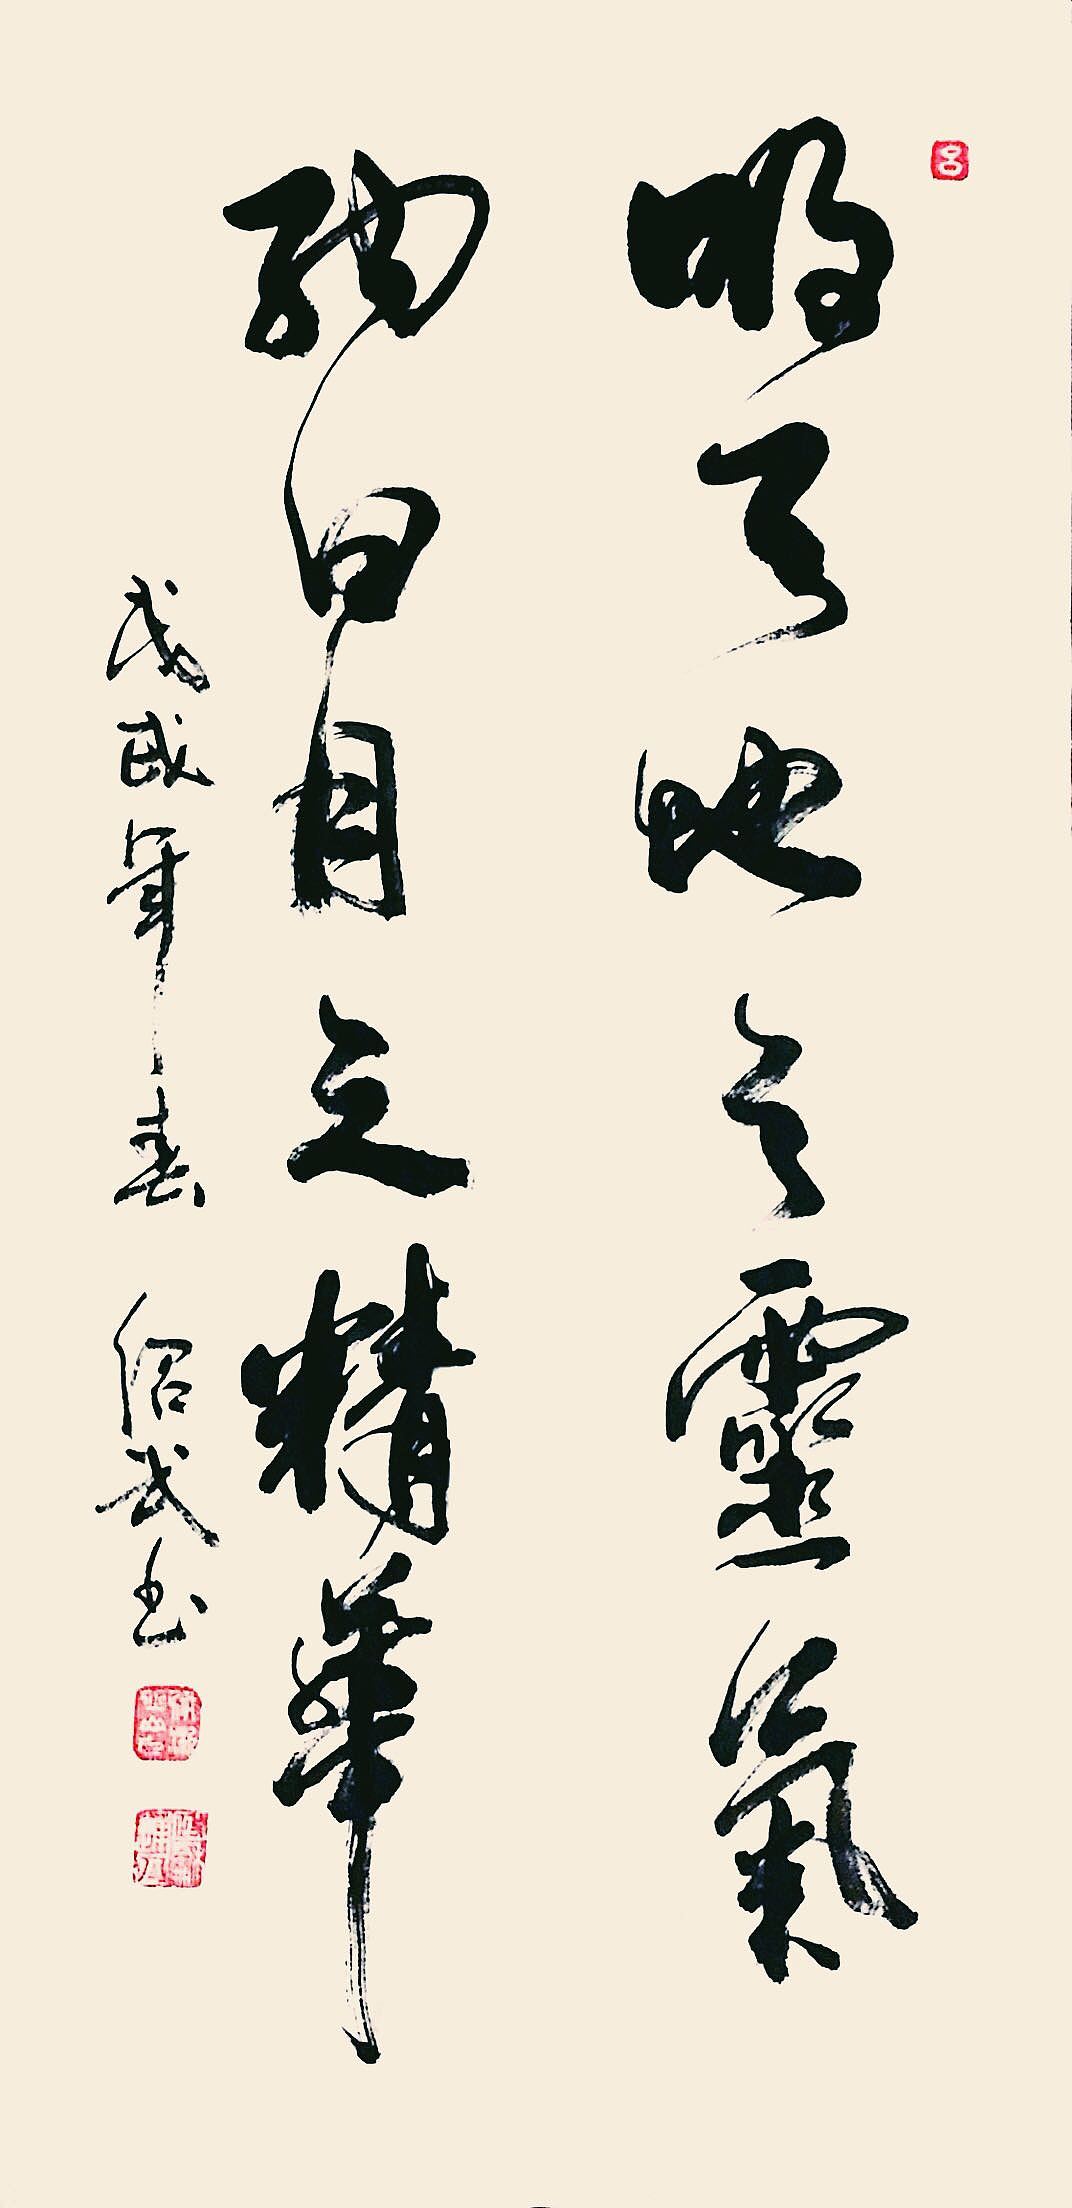 吕
吸天地之靈氣
納日月之精華
戊戌年春 紹武书